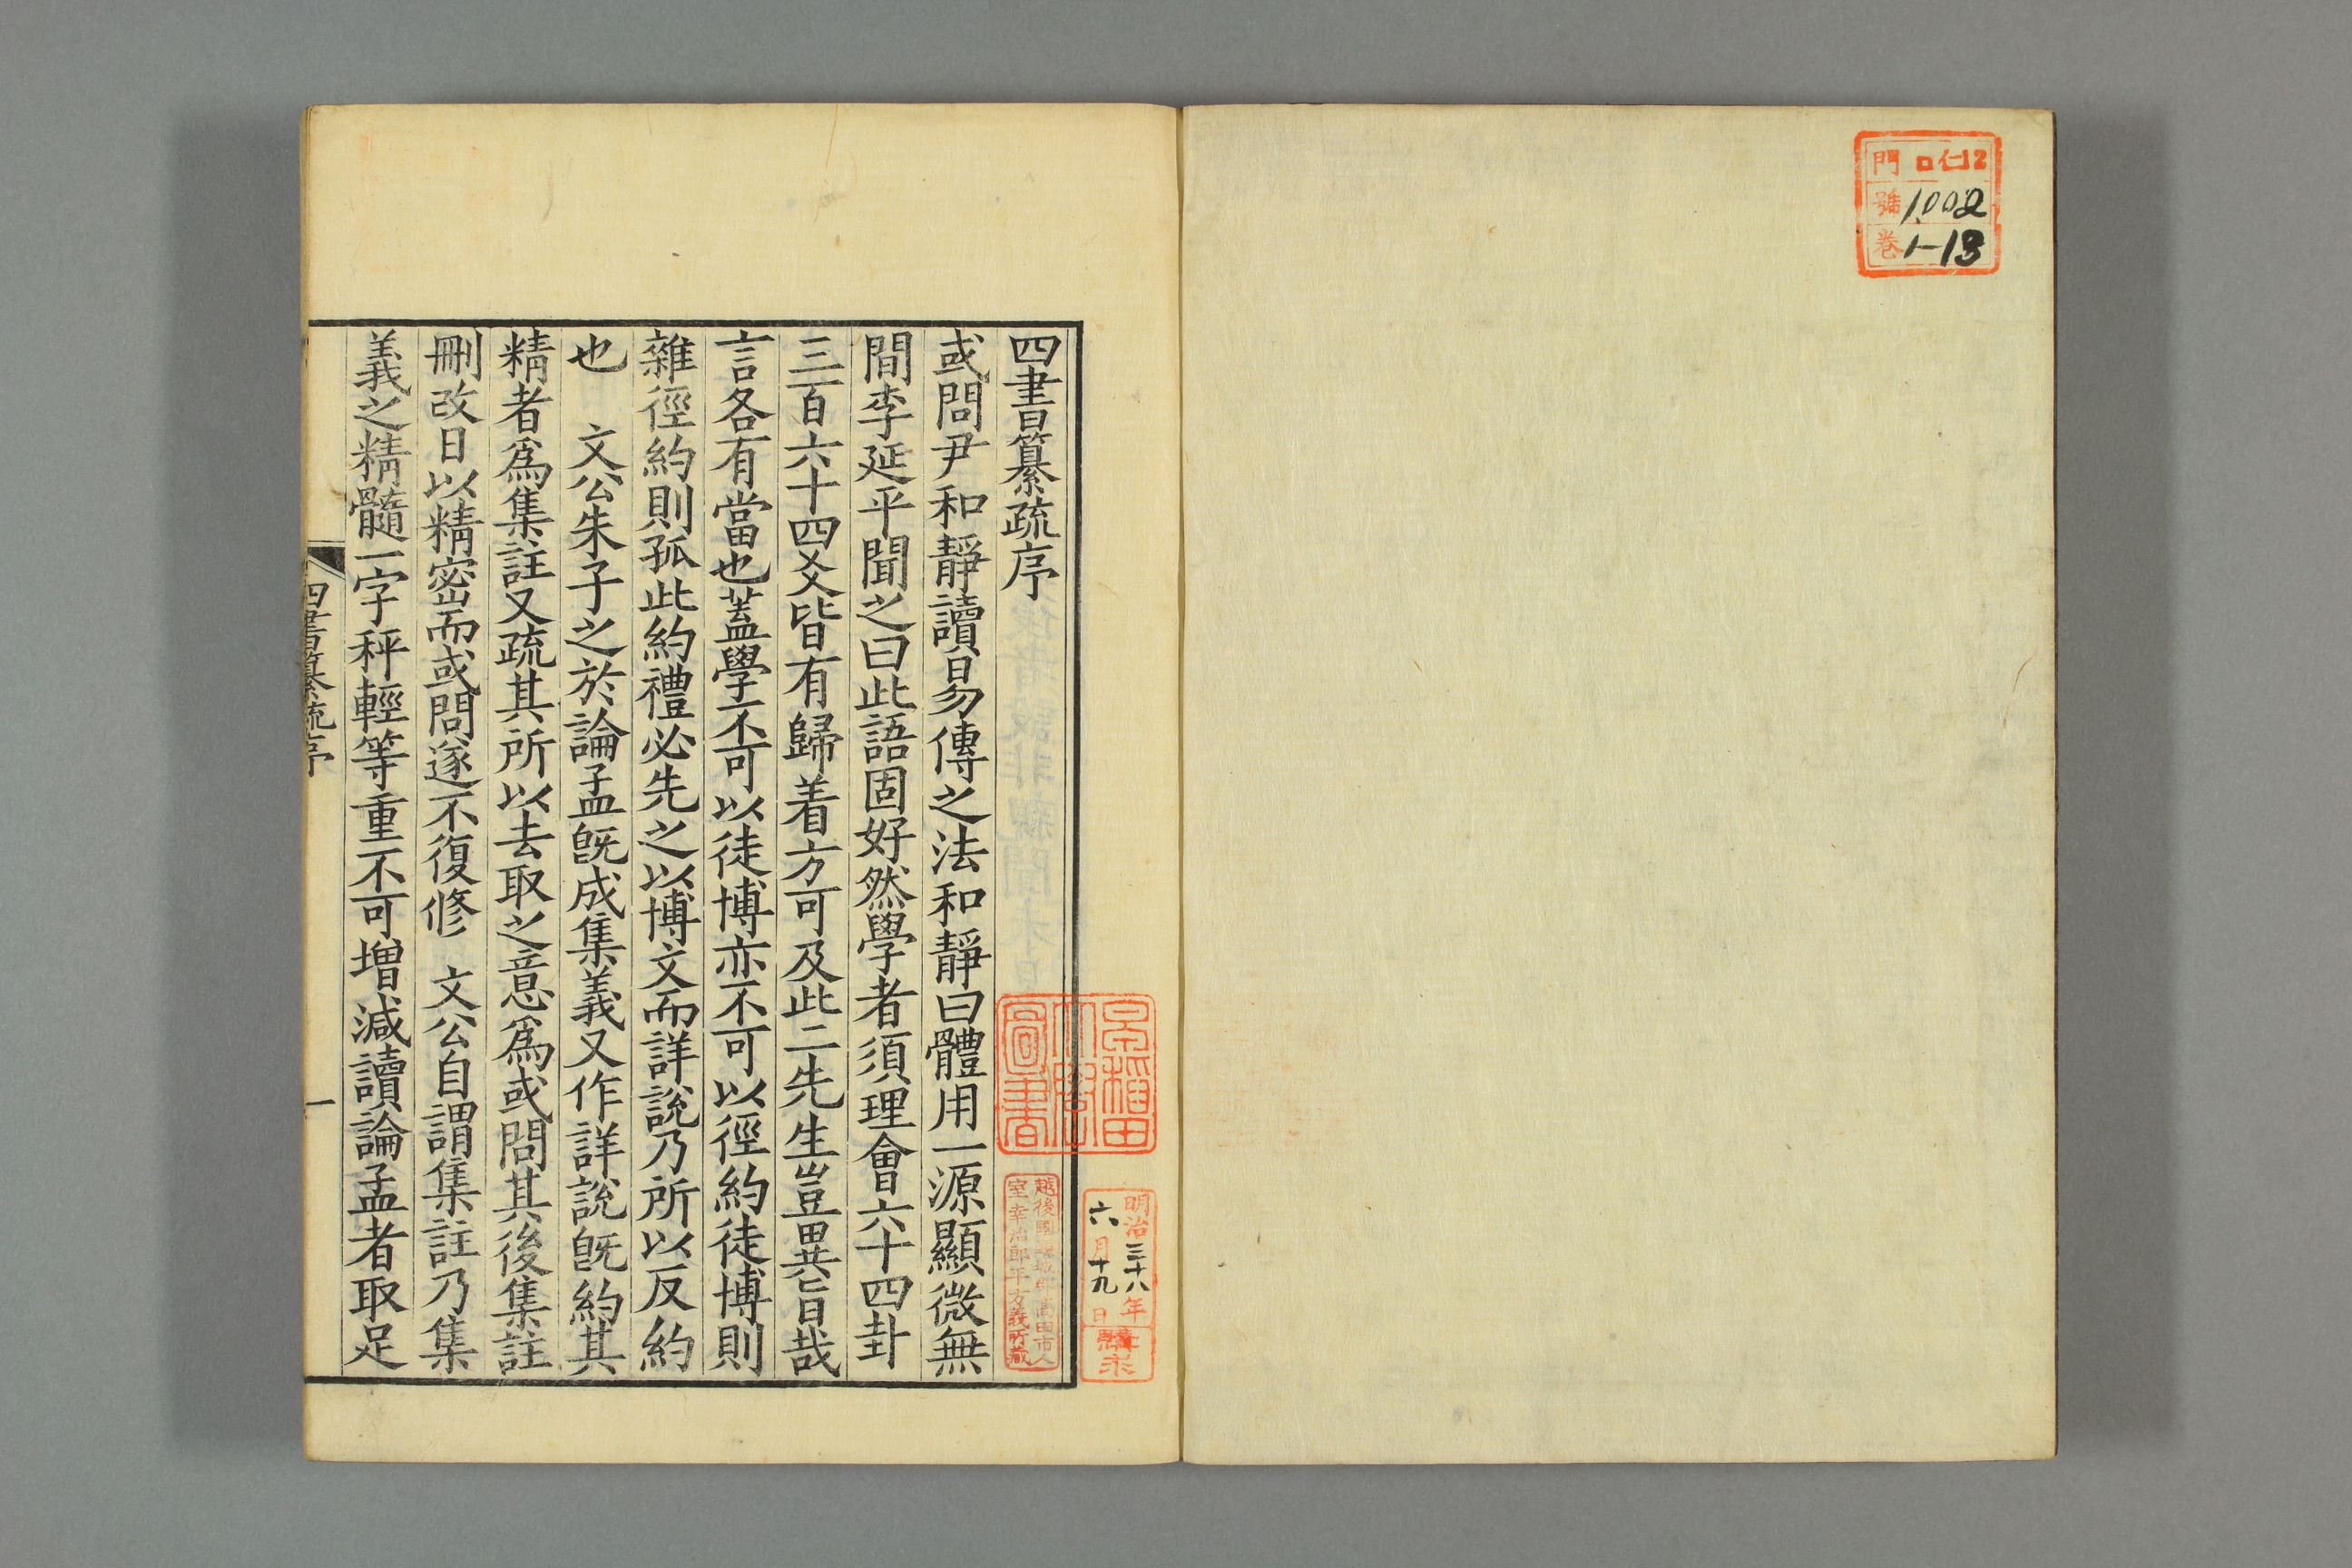 門 ロ仁12
號 1002
卷 1-13
四書纂疏序
或問尹和靜讀易傳之法和靜曰體用一源顯微無
間李延平聞之曰此語固好然學者須理會六十四卦
三百六十四爻皆有歸着方可及此二先生豈異旨哉
言各有當也蓋學不可以徒博亦不可以徑約徒博則
雜徑約則孤此約禮必先之以博文而詳說乃所以反約
也 文公朱子之於論孟旣成集義又作詳說旣約其
精者爲集註又疏其所以去取之意爲或問其後集註
刪改日以精密而或問遂不復修 文公自謂集註乃集
義之精髓一字秤輕等重不可增減讀論孟者取足
四書纂疏序
一
早稲田
大學
圖書
明治三十八年
六月十九日
購求
越後國 高田市人
室幸治郎平方義所藏